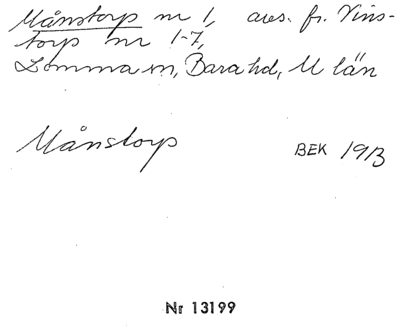 Månstorp nr 1, avs. fr. Vins-
torp nr 1-7,
Lomma sn, Bara hd, M län
Månstorp BEK 1913
Nr 13199